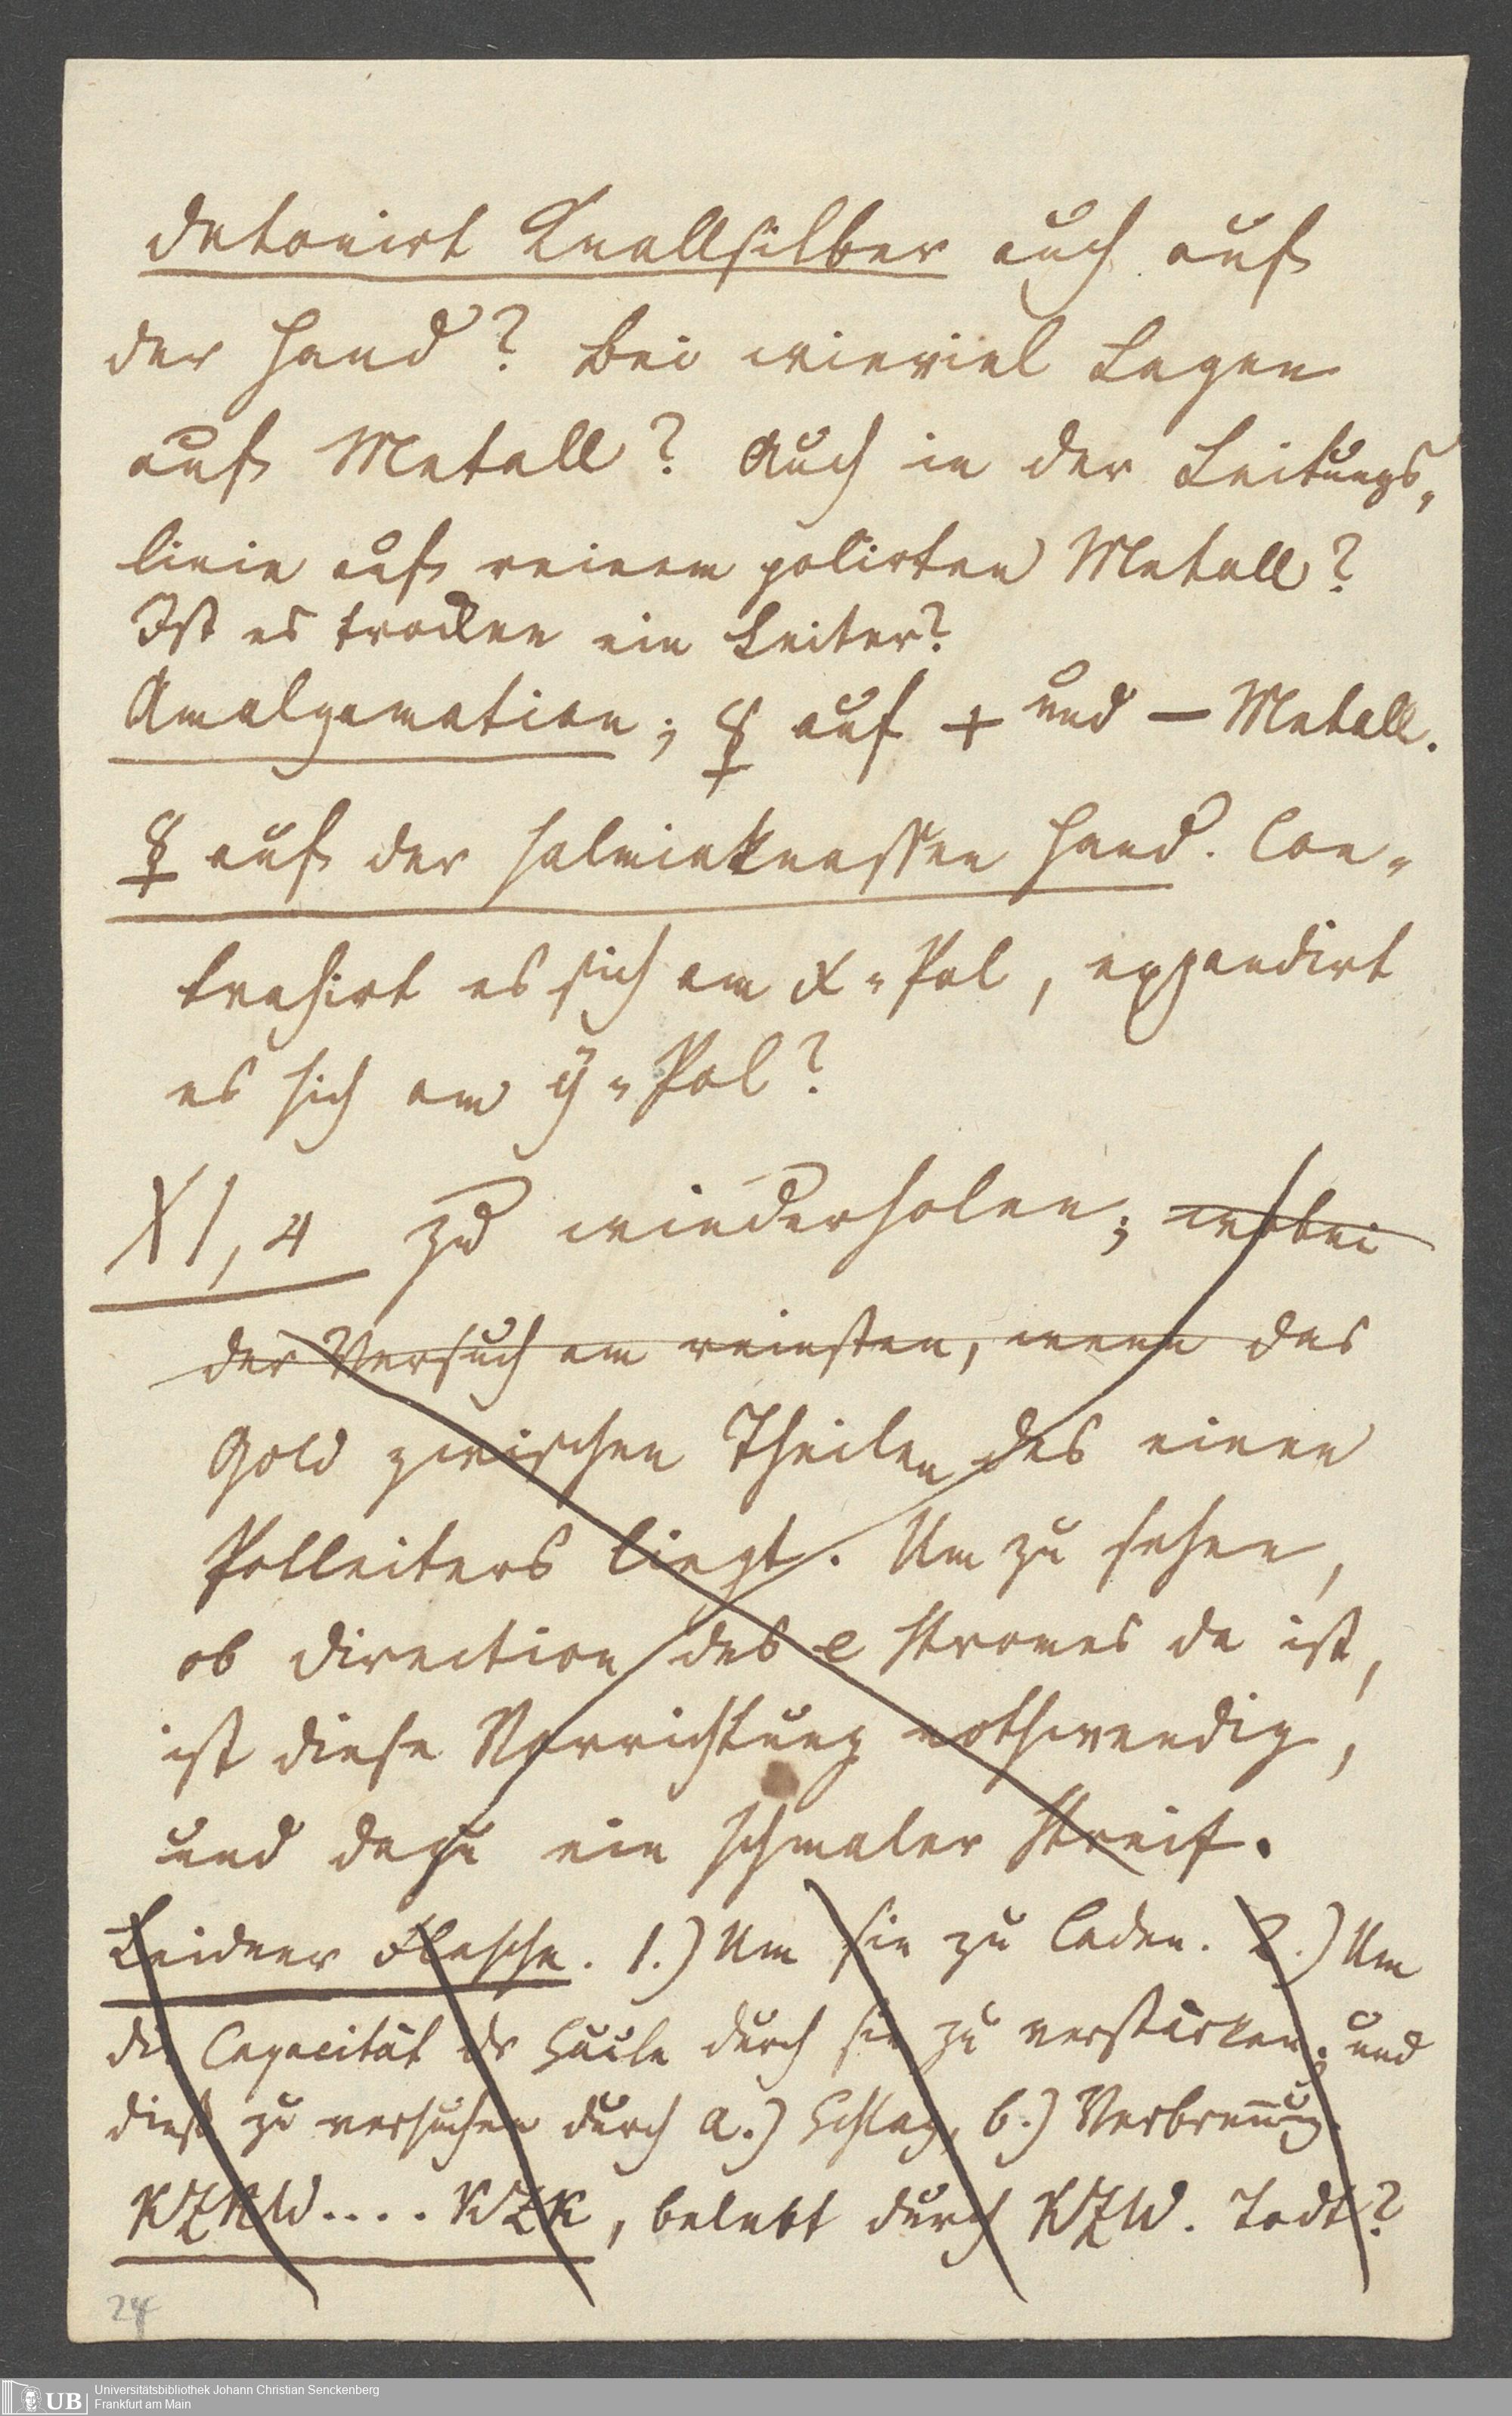 detonirt Knallsilber auch auf
der Hand? Bei wieviel Lagen
auf Metall? Auch in der Leitungs„
linie auf reinem polirten Metall?
Ist es trocken ein Leiter?
Amalgamation; ☿ auf + und — Metall.
☿ auf der salmiaknassen Hand. Con„
trahirt es sich am x„Pol, expandirt
es sich am ÿ„Pol?
XI, 4 zu wiederholen; wobei
der Versuch am reinsten, wenn das
Gold zwischen Theilen des einen
Polleiters liegt. Um zu sehen,
ob Direction des e Stromes da ist,
ist diese Vorrichtung nothwendig,
und dazu ein schmaler Streif.
Leidner Flasche. 1.) Um sie zu laden. 2.) Um
die Capacität der Säule durch sie zu verstärken; und
dieß zu versuchen durch a.) Schlag, b.) Verbrennung.
KZKW.... KZK, belebt durch KZW. Todt?
24
UB Universitätsbibliothek Johann Christian Senckenberg
Frankfurt am Main